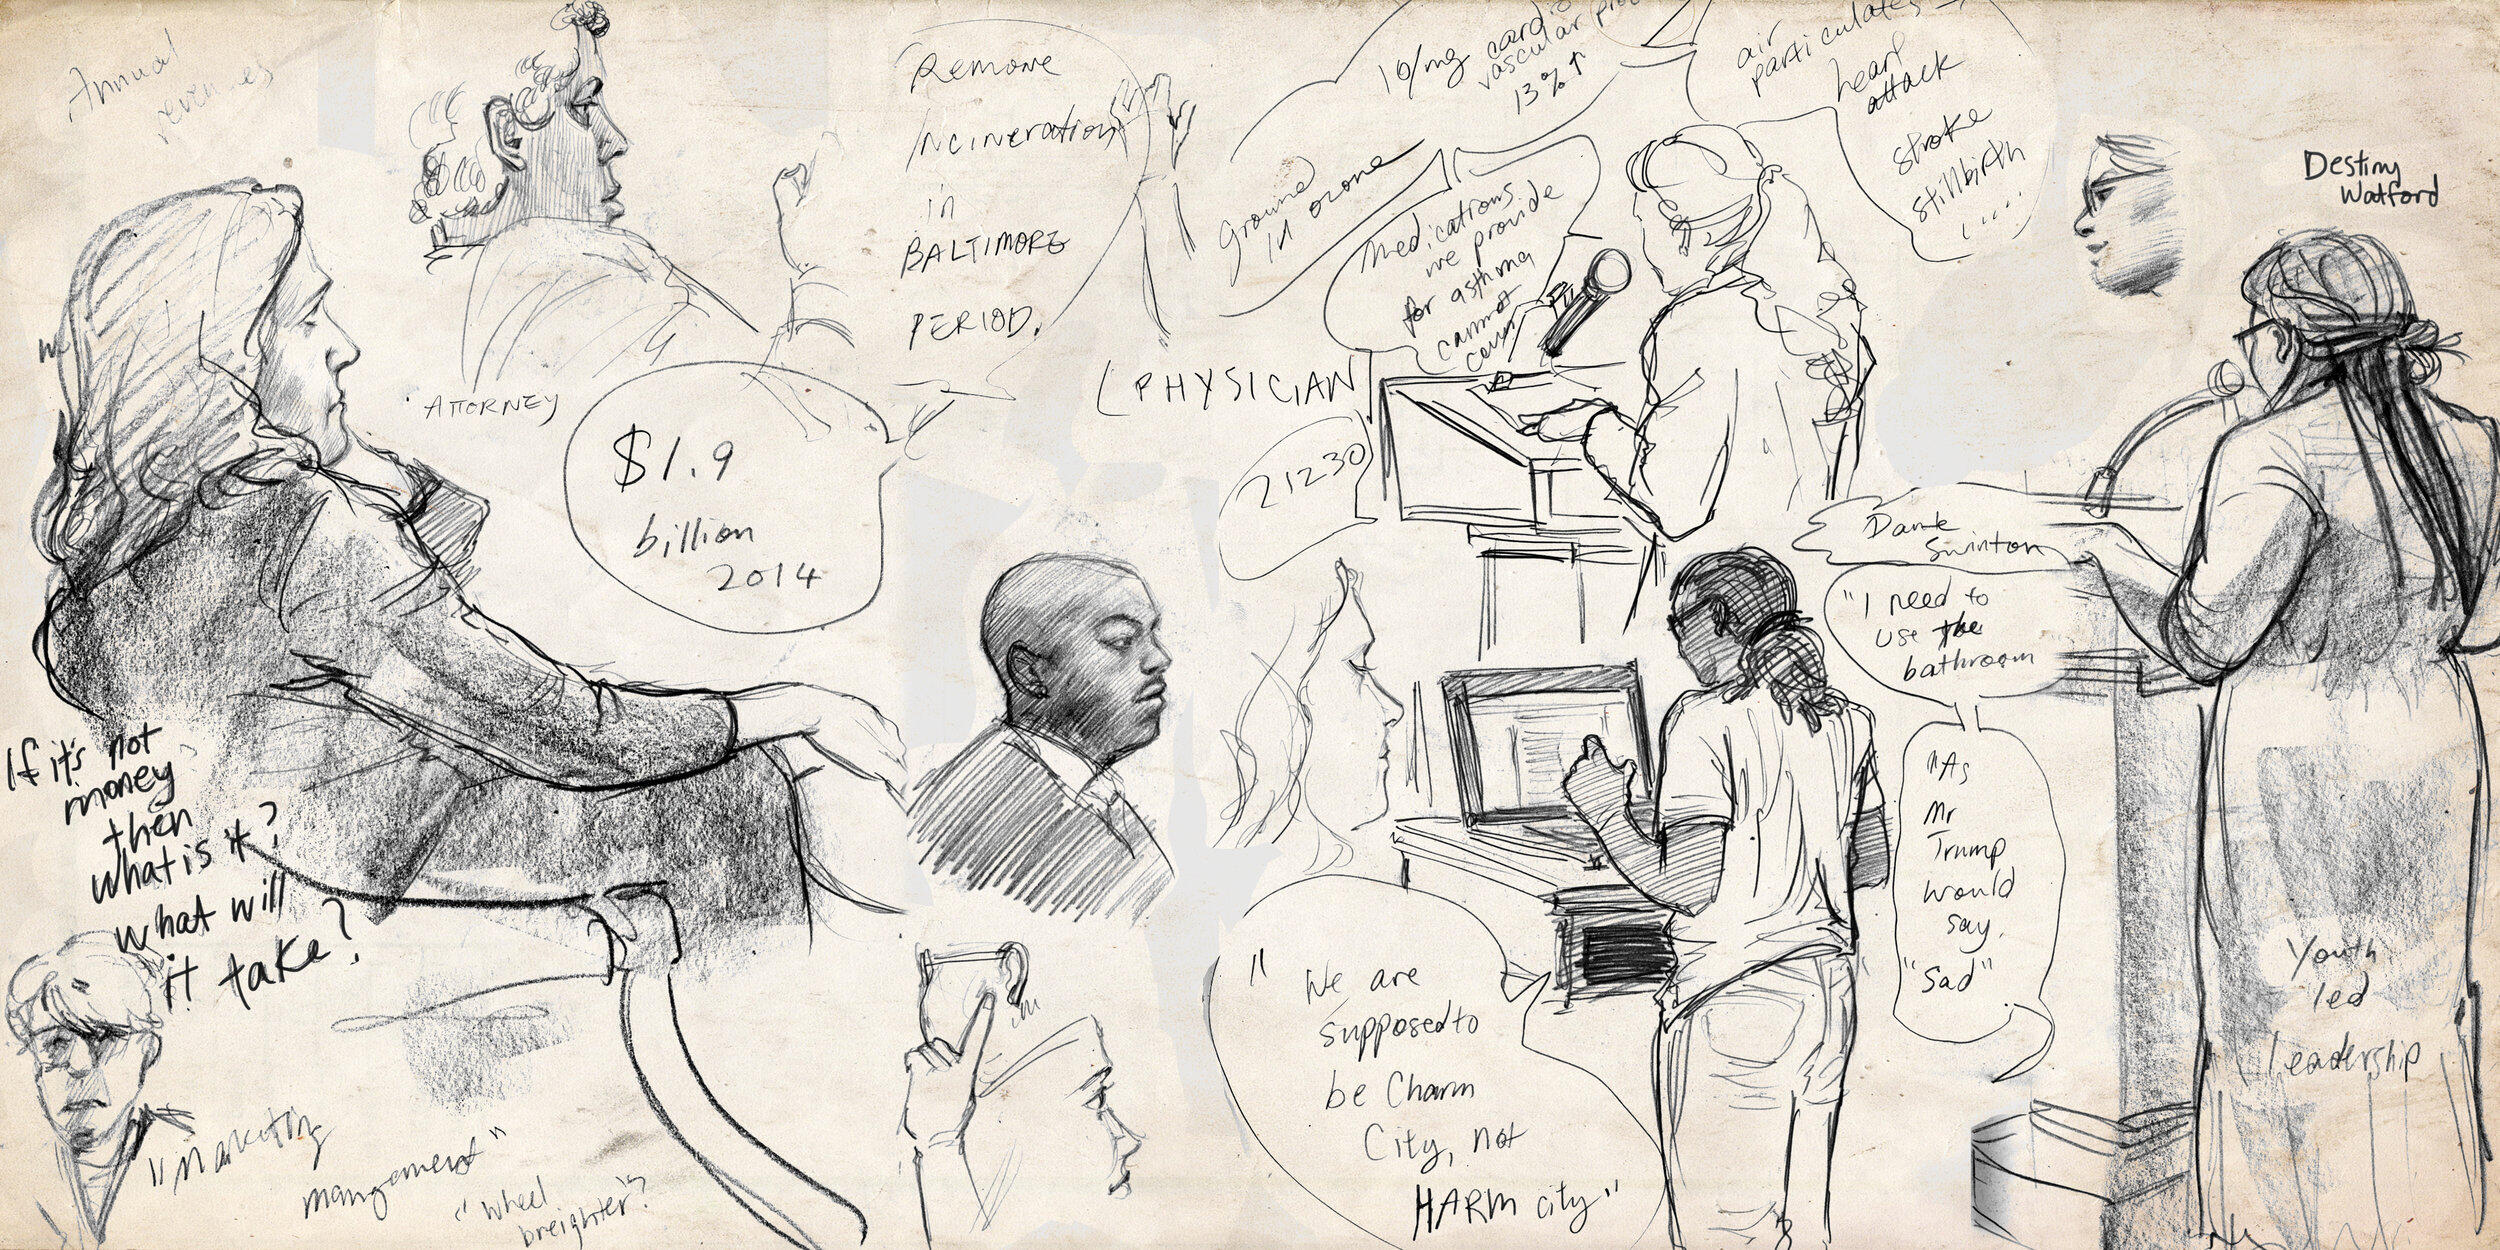 Annual
revenues
ATTORNEY
$1.9
billion
2014
If it's not
money
then
what is it?
what will
it take?
"Marketing
mangement"
"Wheel
breighter"?
Remove
Incineration
in
BALTIMORE
PERIOD.
10/mg cardio
vascular
13% ↑
Ground
lvl ozone
Medications
we provide
for asthma
cannot
(PHYSICIAN
21230
air
particulates →
heart
attack
stroke
stillbirth
....
Destiny
Watford
Dante
Swinton
"I need to
use the
bathroom
"As
Mr
Trump
would
say.
"Sad"
" We are
supposed to
be Charm
City, not
HARM city"
Youth
led
leadership